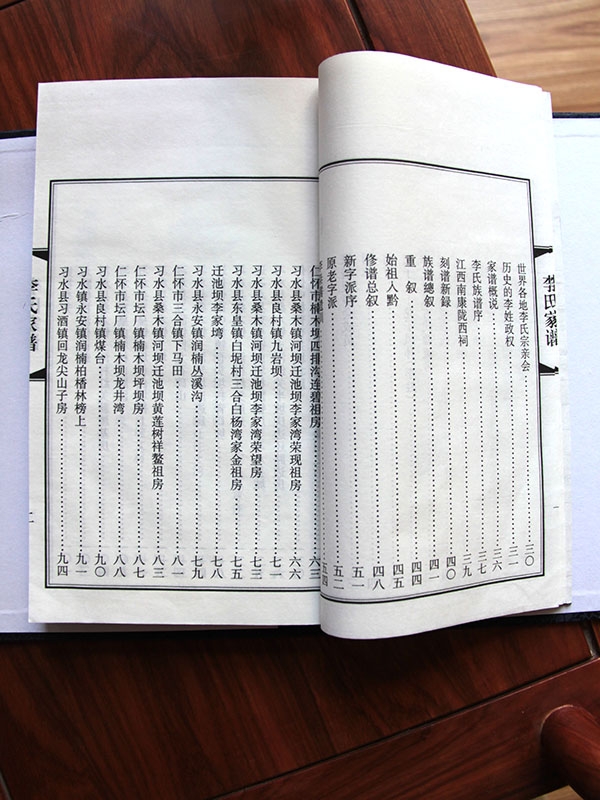 李氏家谱
一
世界各地李氏宗亲会……三〇
历史的李姓政权……三一
家谱概说……三六
李氏族谱序……三七
江西南康陇西祠……三九
刻谱新録……四〇
族谱總叙……四一
重 叙……四四
始祖入黔……四五
修谱总叙……四八
新字派序……五一
原老字派……五二
五四
仁怀市楠木坝四排沟连碧祖房……六三
习水县桑木镇河坝迁池坝李家湾荣现祖房……六六
习水县良村镇九岩坝……七一
习水县桑木镇河坝迁池坝李家湾荣望房……七三
习水县东皇镇白坭村三合白杨湾家金祖房……七五
迁池坝李家塆……七七
习水县永安镇润楠丛溪沟……七九
仁怀市三合镇下马田……八一
习水县桑木镇河坝迁池坝黄莲树祥鳌祖房……八五
仁怀市坛厂镇楠木坝坪坝房……八七
仁怀市坛厂镇楠木坝龙井湾……八八
习水县良村镇煤台……九〇
习水镇永安镇润楠柏楿林榜上……九一
习水县习酒镇回龙尖山子房……九四
李氏家谱